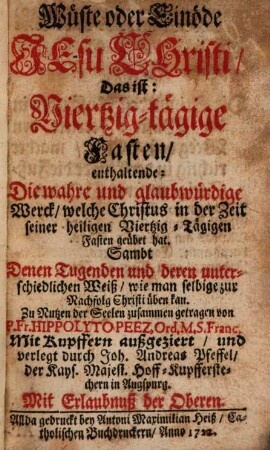 Wüste oder Einöde
JEsu CHristi/
Das ist:
Viertzig-tägige
Fasten/
enthaltende:
Die wahre und glaubwürdige
Werck/ welche Christus in der Zeit
seiner heiligen Viertzig-Tägigen
Fasten geübet hat.
Sambt
Denen Tugenden und deren unter-
schiedlichen Weiß/ wie man selbige zur
Nachfolg Christi üben kan.
Zu Nutzen der Seelen zusammen getragen von
P. Fr. HIPPOLYTO PEEZ, Ord, M, S. Franc.
Mit Kupffern außgeziert/ und
verlegt durch Joh. Andreas Pfeffel/
der Kays. Majest. Hoff-Kupfferste-
chern in Augspurg.
Mit Erlaubnuß der Oberen.
Allda gedruckt bey Antoni Maximilian Heiß/ Ca-
tholischen Buchdruckern/ Anno